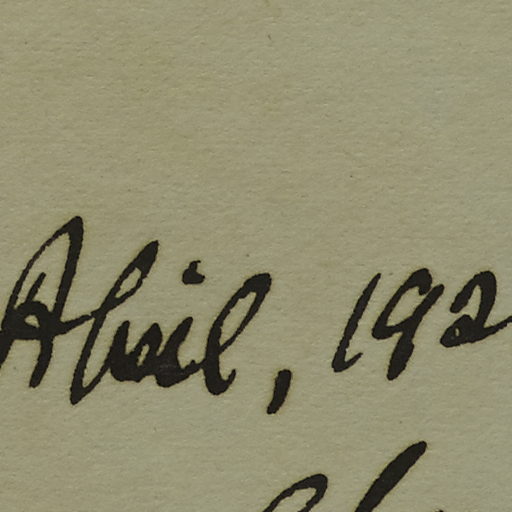 April, 192